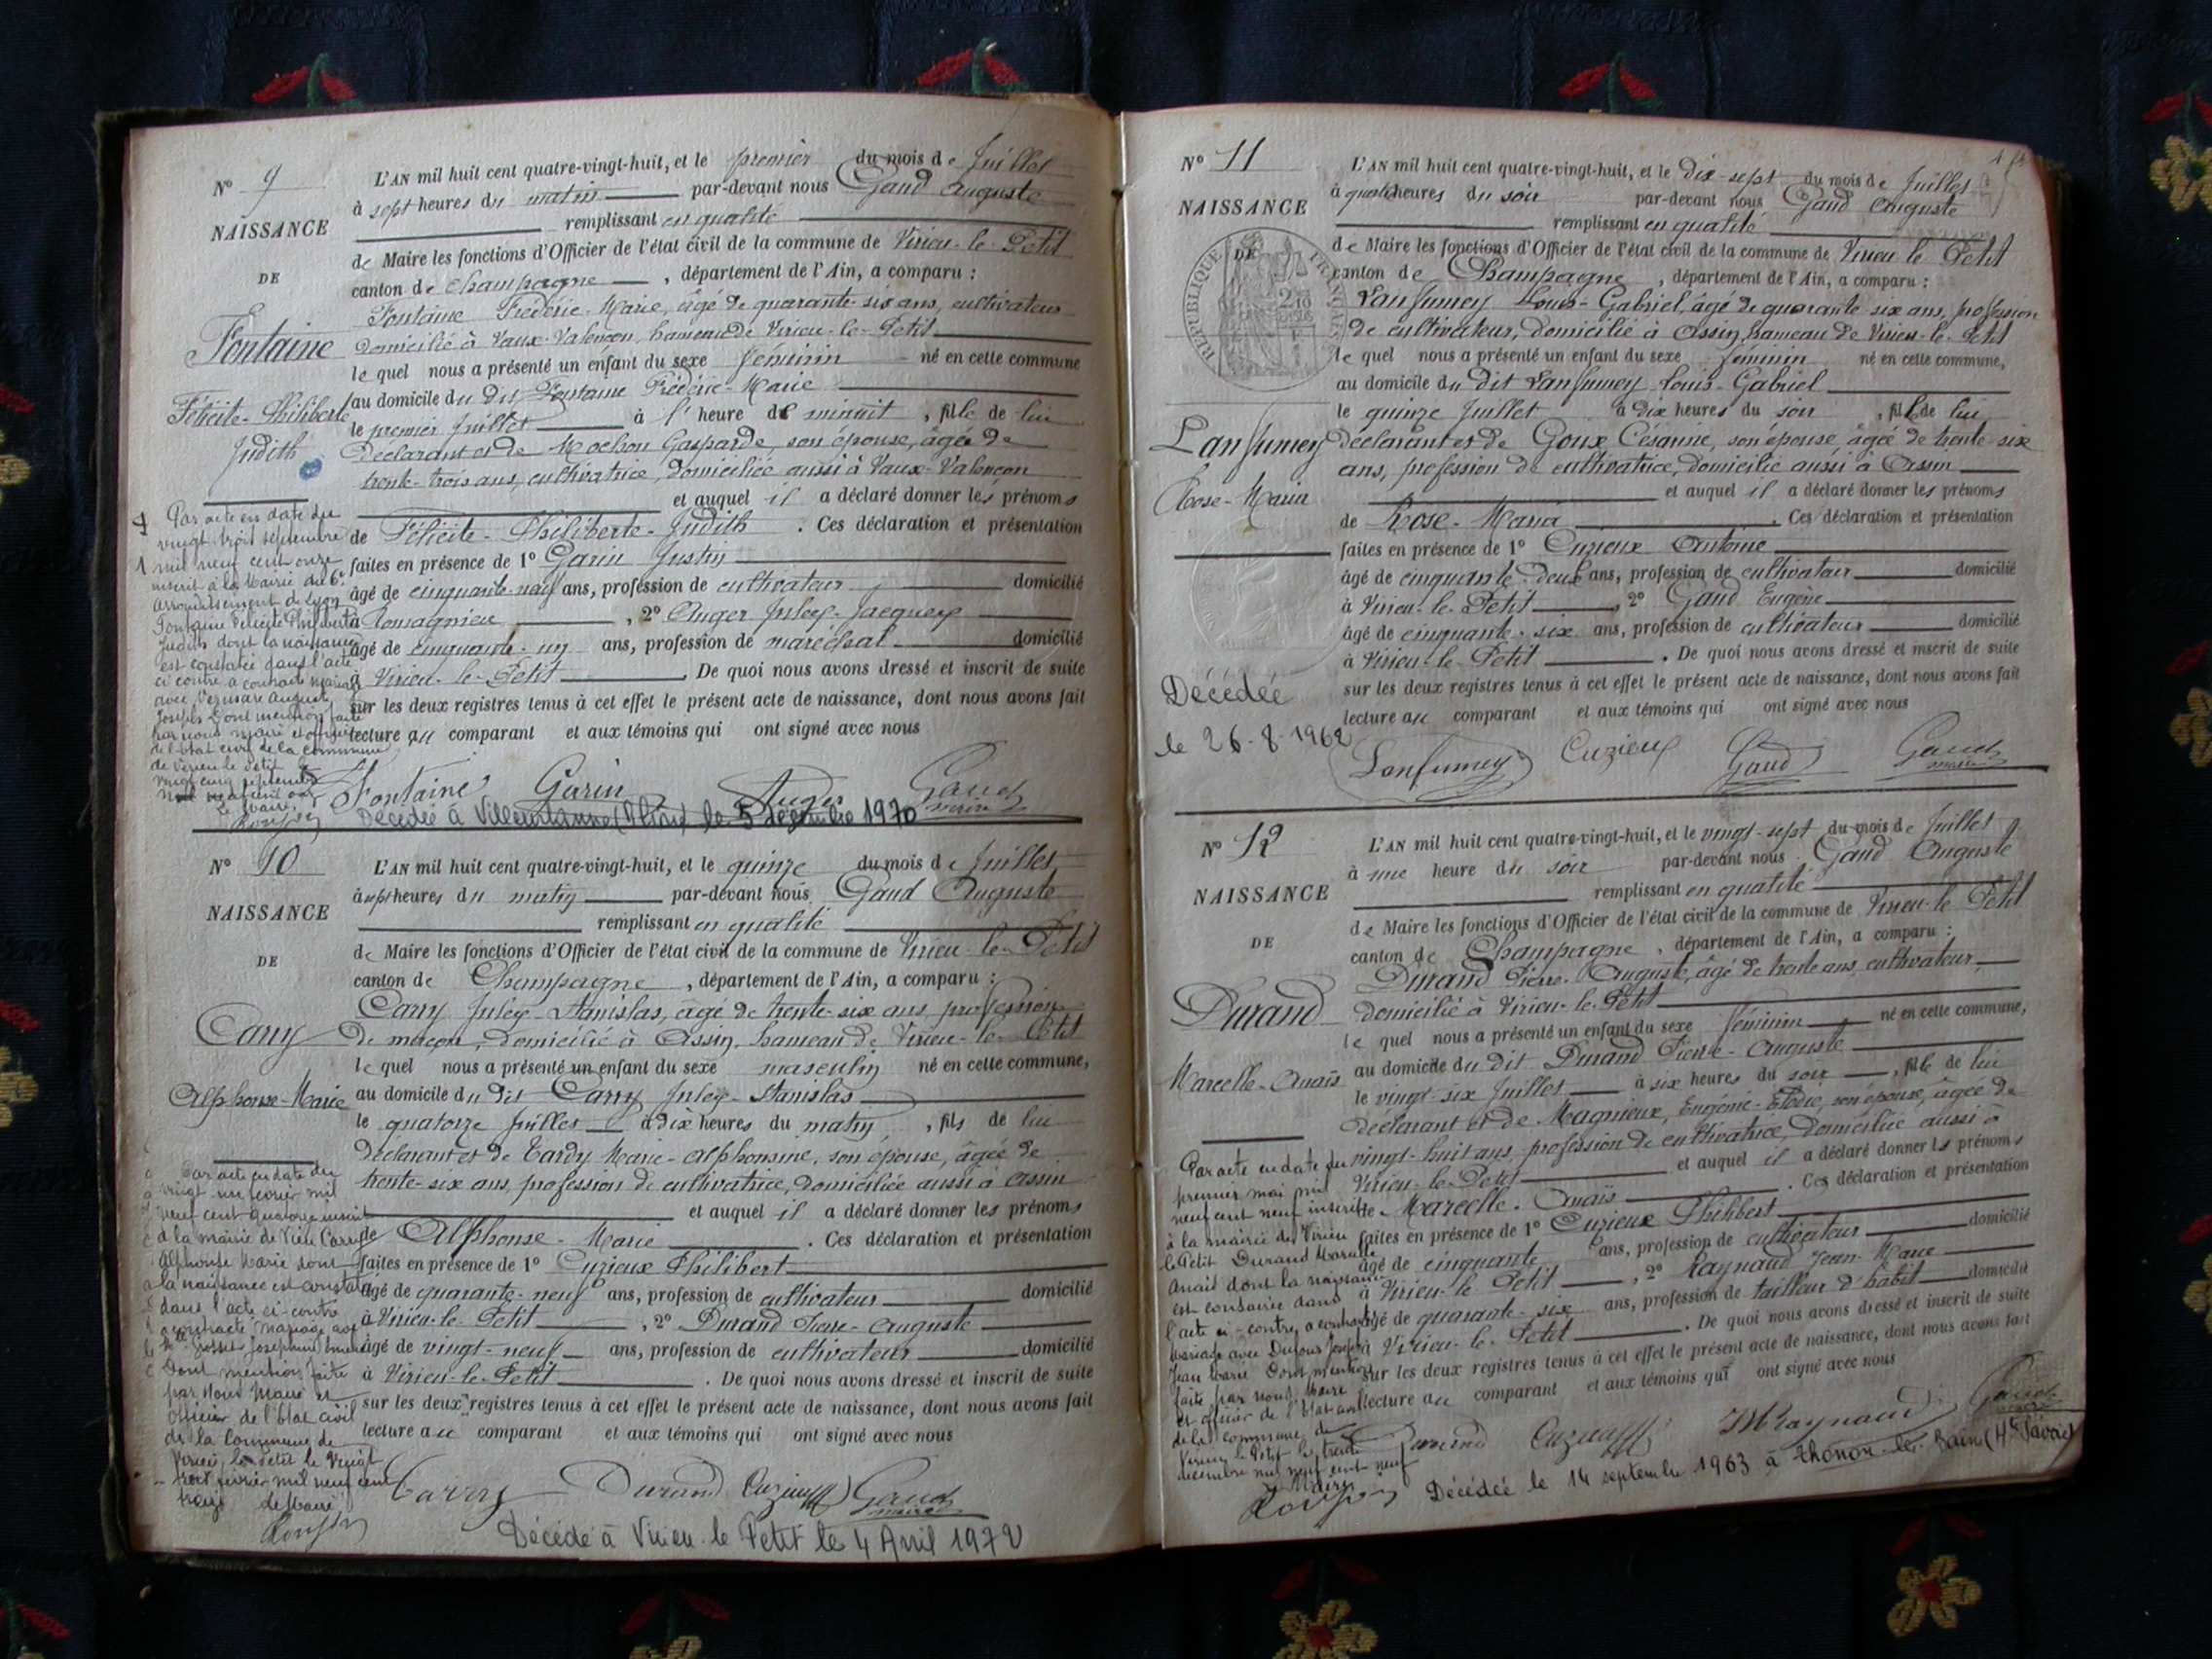 N° 9
NAISSANCE
DE
Fontaine
Félicité-Philiberte
Judith
L'AN mil huit cent quatre-vingt-huit, et le premier du mois de Juillet
à sept heures du matin par-devant nous Gaud Auguste
remplissant en qualité
de Maire les fonctions d'Officier de l'état civil de la commune de Virieu-le-Petit
canton de Champagne, département de l'Ain, a comparu :
Fontaine Frédéric-Marie, âgé de quarante-six ans, cultivateur
domicilié à Vaux-Valençon, hameau de Virieu-le-Petit
le quel nous a présenté un enfant du sexe féminin né en cette commune
au domicile du dit Fontaine Frédéric-Marie
le premier Juillet à l'heure de minuit, fille de lui
déclarant et de Mochon Gasparde, son épouse, âgée de
trente-trois ans, cultivatrice, domiciliée aussi à Vaux-Valençon
et auquel il a déclaré donner les prénoms
de Félicité-Philiberte-Judith. Ces déclaration et présentation
faites en présence de 1° Garin Justin
âgé de cinquante-neuf ans, profession de cultivateur domicilié
à Romagnieu, 2° Auger Jules-Jacques
âgé de cinquante-un ans, profession de maréchal domicilié
à Virieu-le-Petit. De quoi nous avons dressé et inscrit de suite
sur les deux registres tenus à cet effet le présent acte de naissance, dont nous avons fait
lecture au comparant et aux témoins qui ont signé avec nous
Fontaine Garin Auger Gaud
maire
Décédée à Villeurbanne (Rhône) le 5 décembre 1970
Par acte en date du
vingt-trois septembre
mil neuf cent onze
inscrit à la Mairie du 6e
arrondissement de Lyon
Fontaine Félicité Philiberte
Judith dont la naissance
est constatée dans l'acte
ci contre a contracté mariage
avec Auguste
Joseph dont mention faite
par nous maire et officier
de l'Etat civil de la commune
de Virieu le Petit le
vingt cinq septembre
mil neuf cent onze
Le Maire,
N° 10
NAISSANCE
DE
Carry
Alphonse-Marie
L'AN mil huit cent quatre-vingt-huit, et le quinze du mois de Juillet
à sept heures du matin par-devant nous Gaud Auguste
remplissant en qualité
de Maire les fonctions d'Officier de l'état civil de la commune de Virieu-le-Petit
canton de Champagne, département de l'Ain, a comparu :
Carry Jules-Stanislas, âgé de trente-six ans, profession
de maçon, domicilié à Assin, hameau de Virieu-le-Petit
le quel nous a présenté un enfant du sexe masculin né en cette commune,
au domicile du dit Carry Jules-Stanislas
le quatorze Juillet à dix heures du matin, fils de lui
déclarant et de Tardy Marie-Alphonsine, son épouse, âgée de
trente-six ans, profession de cultivatrice, domiciliée aussi à Assin
et auquel il a déclaré donner les prénoms
de Alphonse-Marie. Ces déclaration et présentation
faites en présence de 1° Cuzieux Philibert
âgé de quarante-neuf ans, profession de cultivateur domicilié
à Virieu-le-Petit, 2° Durand Pierre-Auguste
âgé de vingt-neuf ans, profession de cultivateur domicilié
à Virieu-le-Petit. De quoi nous avons dressé et inscrit de suite
sur les deux registres tenus à cet effet le présent acte de naissance, dont nous avons fait
lecture au comparant et aux témoins qui ont signé avec nous
Carry Durand Cuzieux Gaud
maire
Décédé à Virieu-le Petit le 4 Avril 1972
Par acte en date du
vingt-un février mil
neuf cent quatorze inscrit
à la mairie de Vieu Carry
Alphonse Marie dont
la naissance est constatée
dans l'acte ci-contre
a contracté mariage avec
Joséphine
Dont mention faite
par Nous Maire et
Officier de l'Etat civil
de la Commune de
Virieu le Petit le Vingt
trois février mil neuf cent
le Maire
N° 11
NAISSANCE
DE
RÉPUBLIQUE FRANÇAISE
Lanfumey
Rose-Maria
L'AN mil huit cent quatre-vingt-huit, et le dix-sept du mois de Juillet
à quatre heures du soir par-devant nous Gaud Auguste
remplissant en qualité
de Maire les fonctions d'Officier de l'état civil de la commune de Virieu-le-Petit
canton de Champagne, département de l'Ain, a comparu :
Lanfumey Louis-Gabriel, âgé de quarante-six ans, profession
de cultivateur, domicilié à Assin, hameau de Virieu-le-Petit
le quel nous a présenté un enfant du sexe féminin né en cette commune,
au domicile du dit Lanfumey Louis-Gabriel
le quinze Juillet à dix heures du soir, fille de lui
déclarant et de Goux Césarine, son épouse, âgée de trente-six
ans, profession de cultivatrice, domicilié aussi à Assin
et auquel il a déclaré donner les prénoms
de Rose-Maria. Ces déclaration et présentation
faites en présence de 1° Cuzieux Antoine
âgé de cinquante-deux ans, profession de cultivateur domicilié
à Virieu-le-Petit, 2° Gaud Eugène
âgé de cinquante-six ans, profession de cultivateur domicilié
à Virieu-le-Petit. De quoi nous avons dressé et inscrit de suite
sur les deux registres tenus à cet effet le présent acte de naissance, dont nous avons fait
lecture au comparant et aux témoins qui ont signé avec nous
Lanfumey Cuzieux Gaud Gaud
maire
Décédée
le 26-8-1962
N° 12
NAISSANCE
DE
Durand
Marcelle-Anaïs
L'AN mil huit cent quatre-vingt-huit, et le vingt-sept du mois de Juillet
à une heure du soir par-devant nous Gaud Auguste
remplissant en qualité
de Maire les fonctions d'Officier de l'état civil de la commune de Virieu-le-Petit
canton de Champagne, département de l'Ain, a comparu :
Durand Pierre-Auguste, âgé de trente ans, cultivateur,
domicilié à Virieu-le-Petit
le quel nous a présenté un enfant du sexe féminin né en cette commune,
au domicile du dit Durand Pierre-Auguste
le vingt-six Juillet à six heures du soir, fille de lui
déclarant et de Magnieux, Eugénie-Elodie, son épouse, âgée de
vingt-huit ans, profession de cultivatrice, domiciliée aussi à
Virieu-le-Petit et auquel il a déclaré donner les prénoms
de Marcelle-Anaïs. Ces déclaration et présentation
faites en présence de 1° Cuzieux Philibert
âgé de cinquante ans, profession de cultivateur domicilié
à Virieu-le-Petit, 2° Raynaud Jean-Marie
âgé de quarante-six ans, profession de tailleur d'habit domicilié
à Virieu-le-Petit. De quoi nous avons dressé et inscrit de suite
sur les deux registres tenus à cet effet le présent acte de naissance, dont nous avons fait
lecture au comparant et aux témoins qui ont signé avec nous
Durand Cuzieux Raynaud Gaud
maire
Décédée le 14 septembre 1963 à Thonon-les-Bains (Hte Savoie)
Par acte en date du
premier mai mil
neuf cent neuf inscrit
à la mairie de Virieu
le Petit Durand Marcelle
Anaïs dont la naissance
est constatée dans
l'acte ci-contre, a contracté
mariage avec Joseph
Jean Marie Dont mention
faite par nous, Maire
et officier de l'Etat civil
de la commune de
Virieu le Petit le trente
décembre mil neuf cent neuf
le Maire